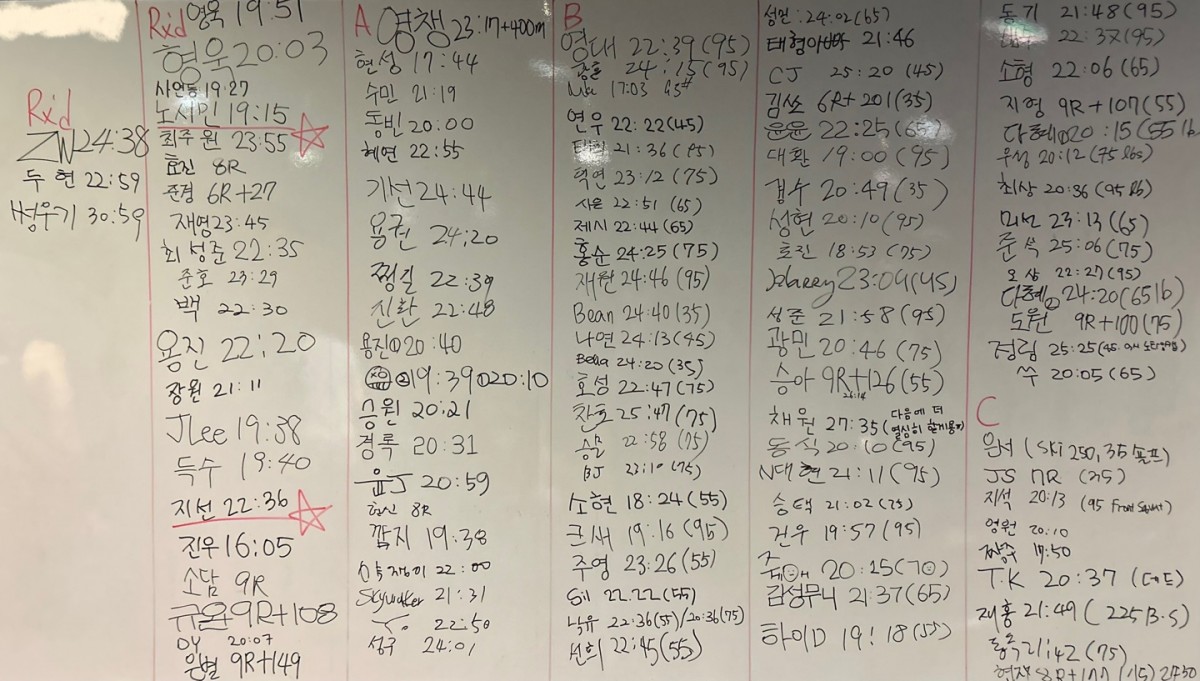 Rx'd
ZW 24:38
두현 22:59
형우기 30:59
Rx'd
영욱 19:51
형욱 20:03
사안동 19:27
노시민 19:15
최주원 23:55
효진 8R
준경 6R+27
재영 23:45
최성준 22:35
준호 23:29
백 22:30
용진 22:20
장원 21:11
JLee 19:38
득수 19:40
지선 22:36
진우 16:05
소담 9R
규율 9R+108
DY 20:07
은별 9R+149
A
영쟁 23:17+400m
현성 17:44
수민 21:19
동빈 20:00
혜연 22:55
기선 24:44
용권 24:20
찡길 22:39
신환 22:48
용진① 20:40
②19:39 ①20:10
승원 20:21
경록 20:31
윤J 20:59
효신 8R
깜지 19:38
22:00
Skywalker 21:31
22:50
성구 24:01
B
영대 22:39 (95)
24:15 (95)
17:03
연우 22:22 (45)
21:36
택연 23:12 (75)
샤은 22:51 (65)
제시 22:44 (65)
홍순 24:25 (75)
재원 24:46 (95)
Bean 24:40 (35)
나연 24:13 (45)
Bella 24:20 (35)
호성 22:47 (75)
찬호 25:47 (75)
승모 22:58 (75)
BJ 23:10 (75)
소현 18:24 (55)
큰새 19:16 (95)
주영 23:26 (55)
Gil 22:22 (55)
낙유 22:36 (55) / 20:36 (75)
선희 22:45 (55)
성민 : 24:02 (65)
태형 21:46
CJ 25:20 (45)
김쏘 6R+201 (35)
윤윤 22:25 (65)
대환 19:00 (95)
경수 20:49 (35)
성현 20:10 (95)
효진 18:53 (75)
23:04 (45)
성준 21:58 (95)
광민 20:46 (75)
승아 9R+126 (55)
채원 27:35 (다음에 더 열심히 할게용)
동식 20:10 (95)
N대현 21:11 (95)
승택 21:02 (75)
건우 19:57 (95)
20:15
김성무니 21:37 (65)
하이D 19:18 (55)
동기 21:48 (95)
22:37 (95)
소형 22:06 (65)
지형 9R+107 (55)
다혜① 20:15 (55 lb
우성 20:12 (75 lbs)
최상 20:36 (95 lb)
미선 23:13 (65)
준석 25:06 (75)
오상 22:27 (95)
다혜② 24:20 (65 lb)
도원 9R+100 (75)
정림 25:25
쑤 20:05 (65)
C
은서 (Ski 250, 35 골프)
JS 7R (35)
지석 20:13 (95 Front Squat)
영원 20:10
짱수 17:50
T.K 20:37 (데드)
재홍 21:49 (225 B.S)
동욱 21:42 (75)